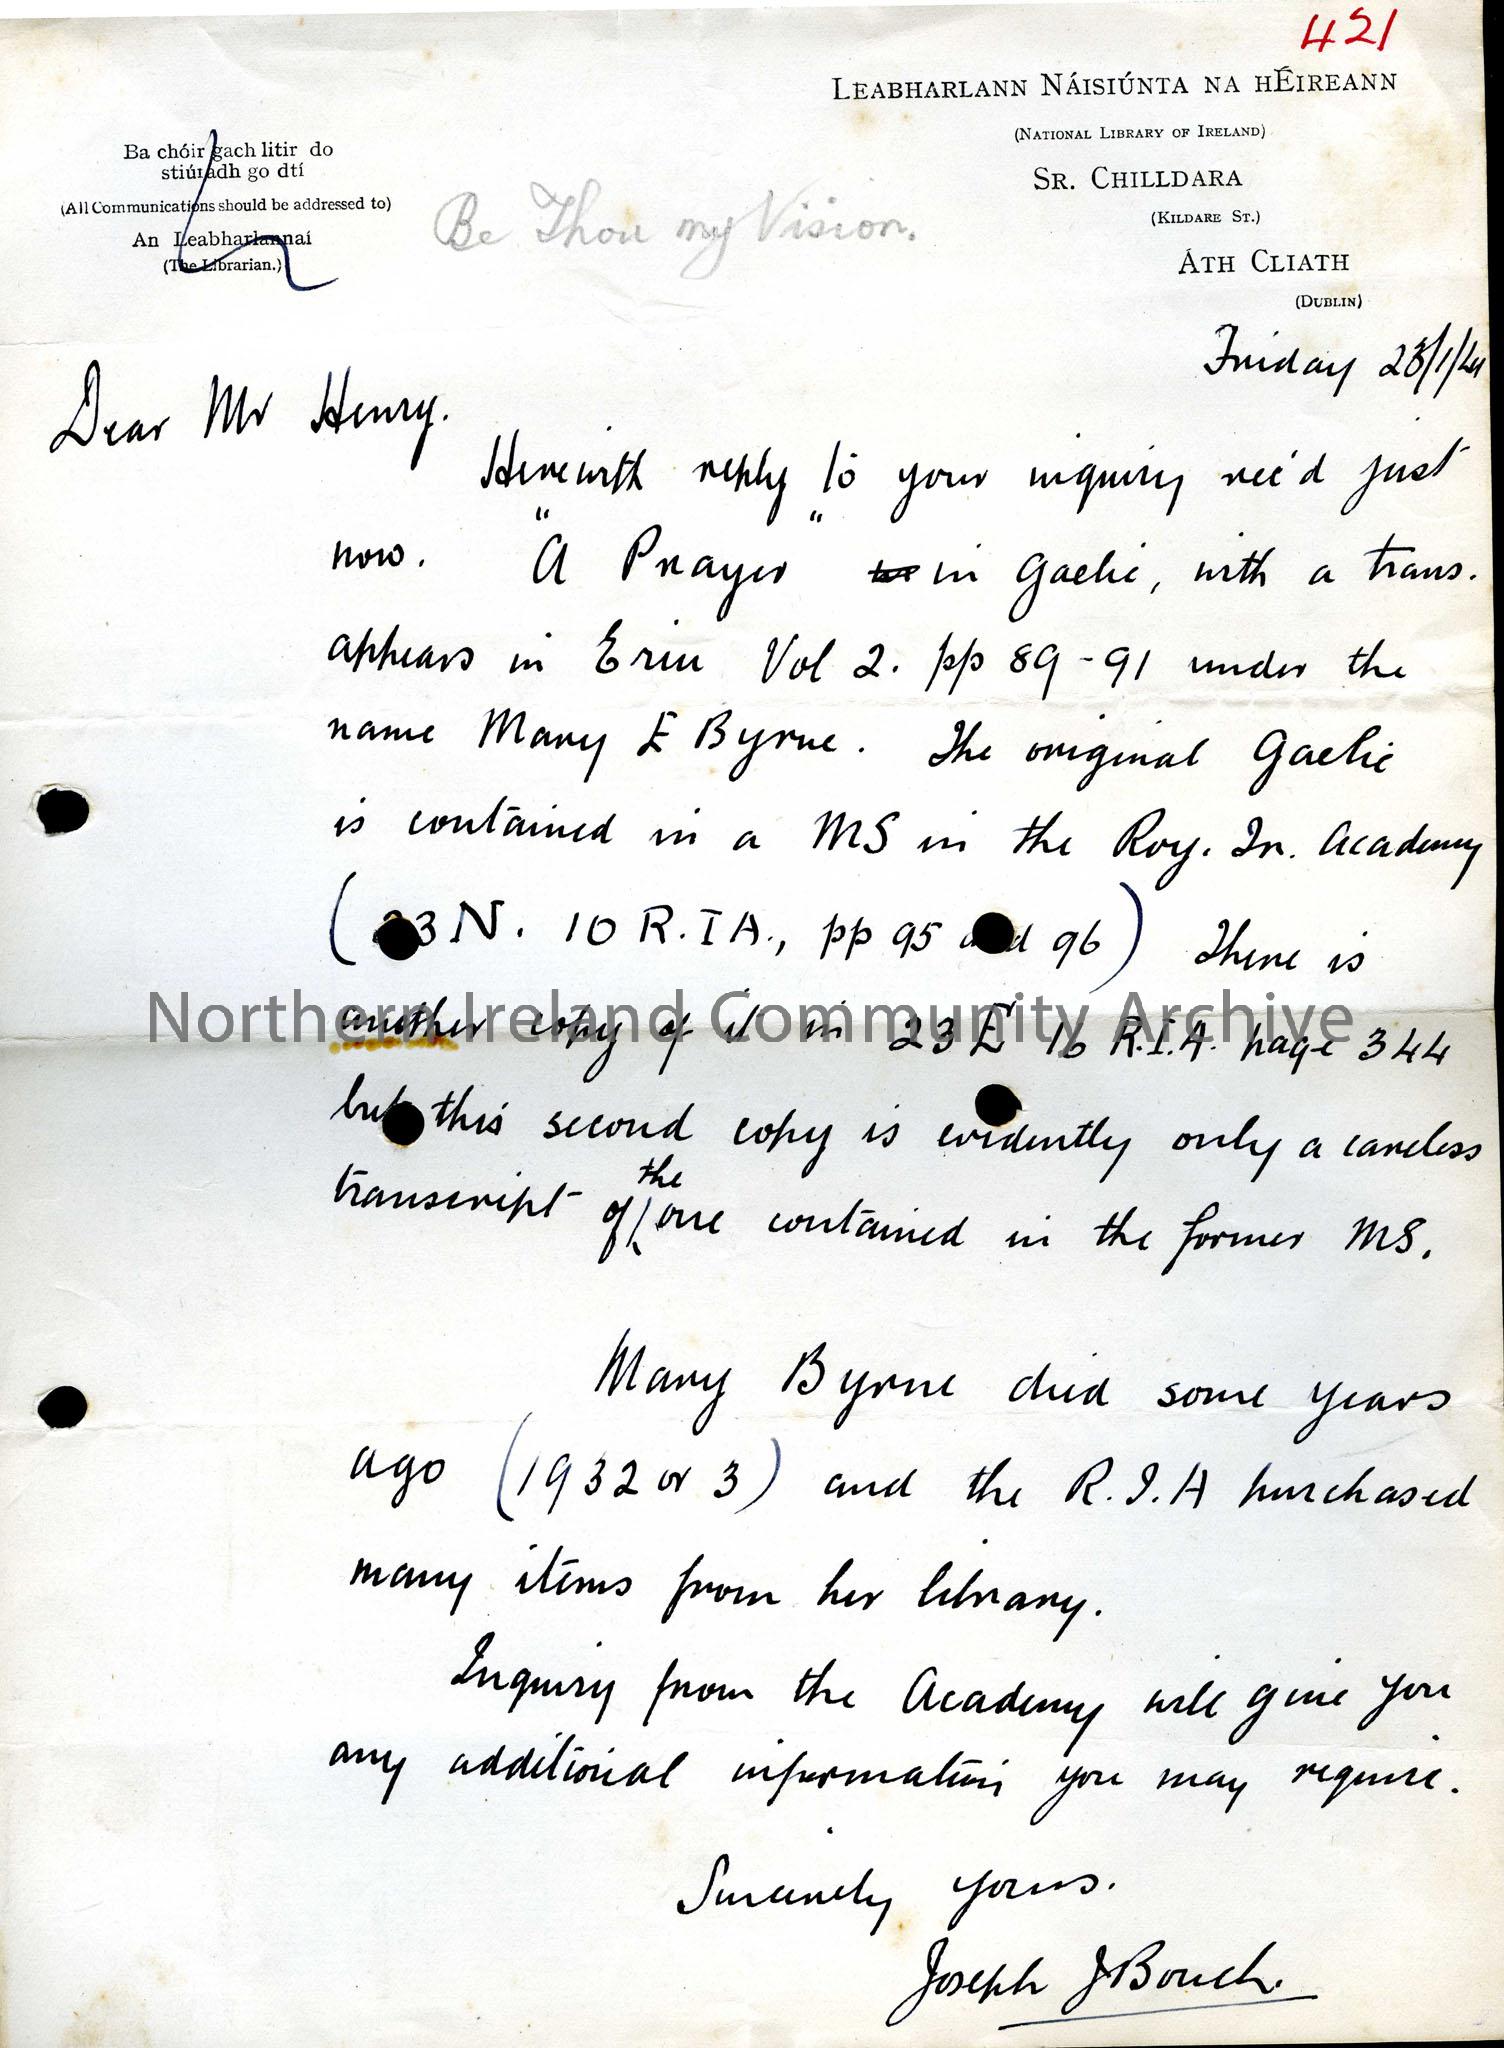 421
LEABHARLANN NÁISIÚNTA NA HÉIREANN
(NATIONAL LIBRARY OF IRELAND)
SR. CHILLDARA
(KILDARE ST.)
ÁTH CLIATH
(DUBLIN)
Ba chóir gach litir do
stiúradh go dtí
(All Communications should be addressed to)
An Leabharlannaí
(The Librarian.)
Be Thou my Vision.
Friday 28/1/44
Dear Mr Henry.
Herewith reply to your inquiry rec'd just
now. "A Prayer" in Gaelic, with a trans.
appears in Eriu Vol 2. pp 89-91 under the
name Mary E Byrne. The original Gaelic
is contained in a MS in the Roy. Ir. Academy
(23 N. 10 R.I A., pp 95 and 96) There is
another copy of it in 23 E 16 R.I.A. page 344
but this second copy is evidently only a careless
transcript of the one contained in the former MS.
Mary Byrne died some years
ago (1932 or 3) and the R.I.A purchased
many items from her library.
Inquiry from the Academy will give you
any additional information you may require.
Sincerely yours.
Joseph J Bouch.
Northern Ireland Community Archive